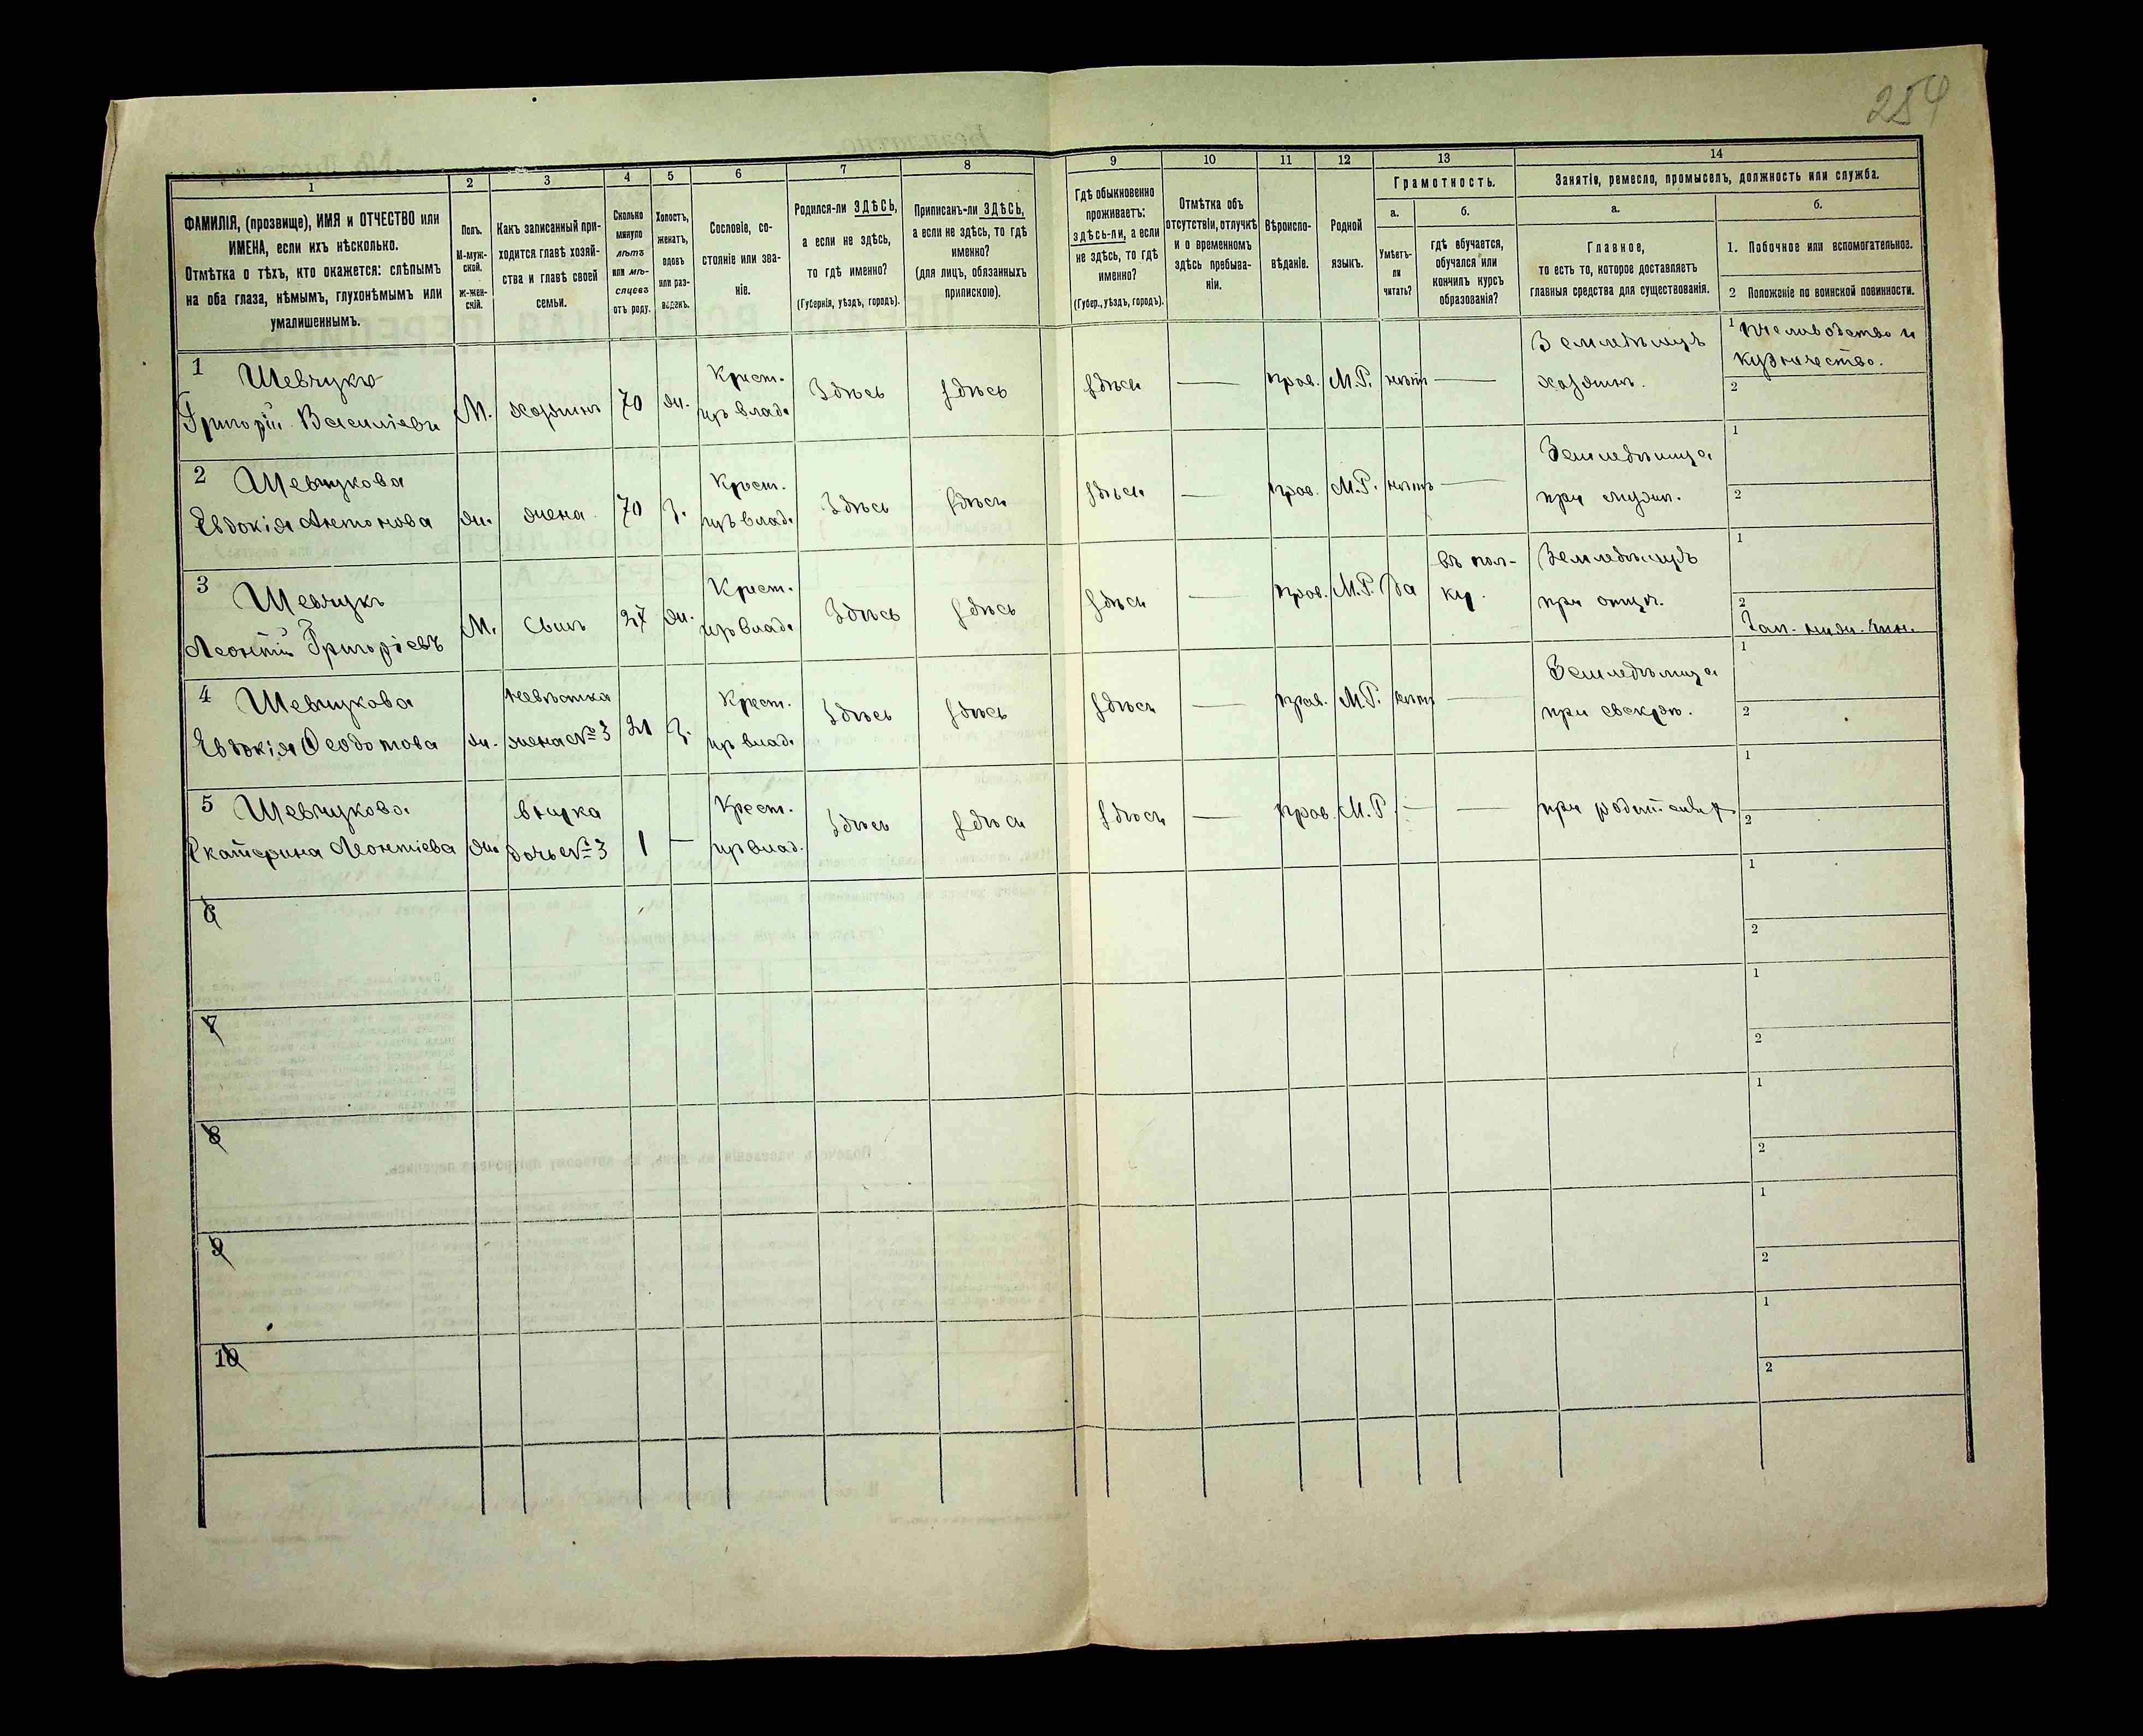 254
1
2
3
4
5
6
7
8
9
10
11
12
13
14
ФАМИЛІЯ, (прозвище), ИМЯ и ОТЧЕСТВО или
ИМЕНА, если ихъ нѣсколько.
Отмѣтка о тѣхъ, кто окажется: слѣпымъ
на оба глаза, нѣмымъ, глухонѣмымъ или
умалишеннымъ.
Полъ.
М-муж-
ской.
Ж-жен-
скій.
Какъ записанный при-
ходится главѣ хозяй-
ства и главѣ своей
семьи.
Сколько
минуло
лѣтъ
или мѣ-
сяцевъ
отъ роду.
Холостъ,
женатъ,
вдовъ
или раз-
веденъ.
Сословіе, со-
стояніе или зва-
ніе.
Родился-ли ЗДѢСЬ,
а если не здѣсь,
то гдѣ именно?
(Губернія, уѣздъ, городъ).
Приписанъ-ли ЗДѢСЬ,
а если не здѣсь, то гдѣ
именно?
(для лицъ, обязанныхъ
припискою).
Гдѣ обыкновенно
проживаетъ:
здѣсь-ли, а если
не здѣсь, то гдѣ
именно?
(Губер., уѣздъ, городъ).
Отмѣтка объ
отсутствіи, отлучкѣ
и о временномъ
здѣсь пребыва-
ніи.
Вѣроиспо-
вѣданіе.
Родной
языкъ.
Грамотность.
а.
Умѣетъ-
ли
читать?
б.
гдѣ обучается,
обучался или
кончилъ курсъ
образованія?
Занятіе, ремесло, промыселъ, должность или служба.
а.
Главное,
то есть то, которое доставляетъ
главныя средства для существованія.
б.
1. Побочное или вспомогательное.
2 Положеніе по воинской повинности.
1 Шевчукъ
Григорій Василіевъ
М.
хозяинъ
70
ж.
Крест.
изъ влад.
Здѣсь
здѣсь
здѣсь
—
прав.
М.Р.
нѣтъ
—
Земледѣлецъ
хозяинъ.
1 Пчеловодство и
кузнечество.
2
2 Шевчукова
Евдокія Антонова
ж.
жена
70
з.
Крест.
изъ влад.
Здѣсь
здѣсь
здѣсь
—
прав.
М.Р.
нѣтъ
—
Земледѣлица
при мужѣ.
1
2
3 Шевчукъ
Леонтій Григоріевъ
М.
Сынъ
27
ж.
Крест.
изъ влад.
Здѣсь
здѣсь
здѣсь
—
прав.
М.Р.
да
въ пол-
ку.
Земледѣлецъ
при отцѣ.
1
2
Зап. ниж. чин.
4 Шевчукова
Евдокія Ѳеодотова
ж.
невѣстка
жена № 3
21
з.
Крест.
изъ влад.
Здѣсь
здѣсь
здѣсь
—
прав.
М.Р.
нѣтъ
—
Земледѣлица
при свекрѣ.
1
2
5 Шевчукова
Екатерина Леонтіева
ж.
внучка
дочь № 3
1
—
Крест.
изъ влад.
Здѣсь
здѣсь
здѣсь
—
прав.
М.Р.
—
—
при родителях
1
2
6
1
2
7
1
2
8
1
2
9
1
2
10
1
2